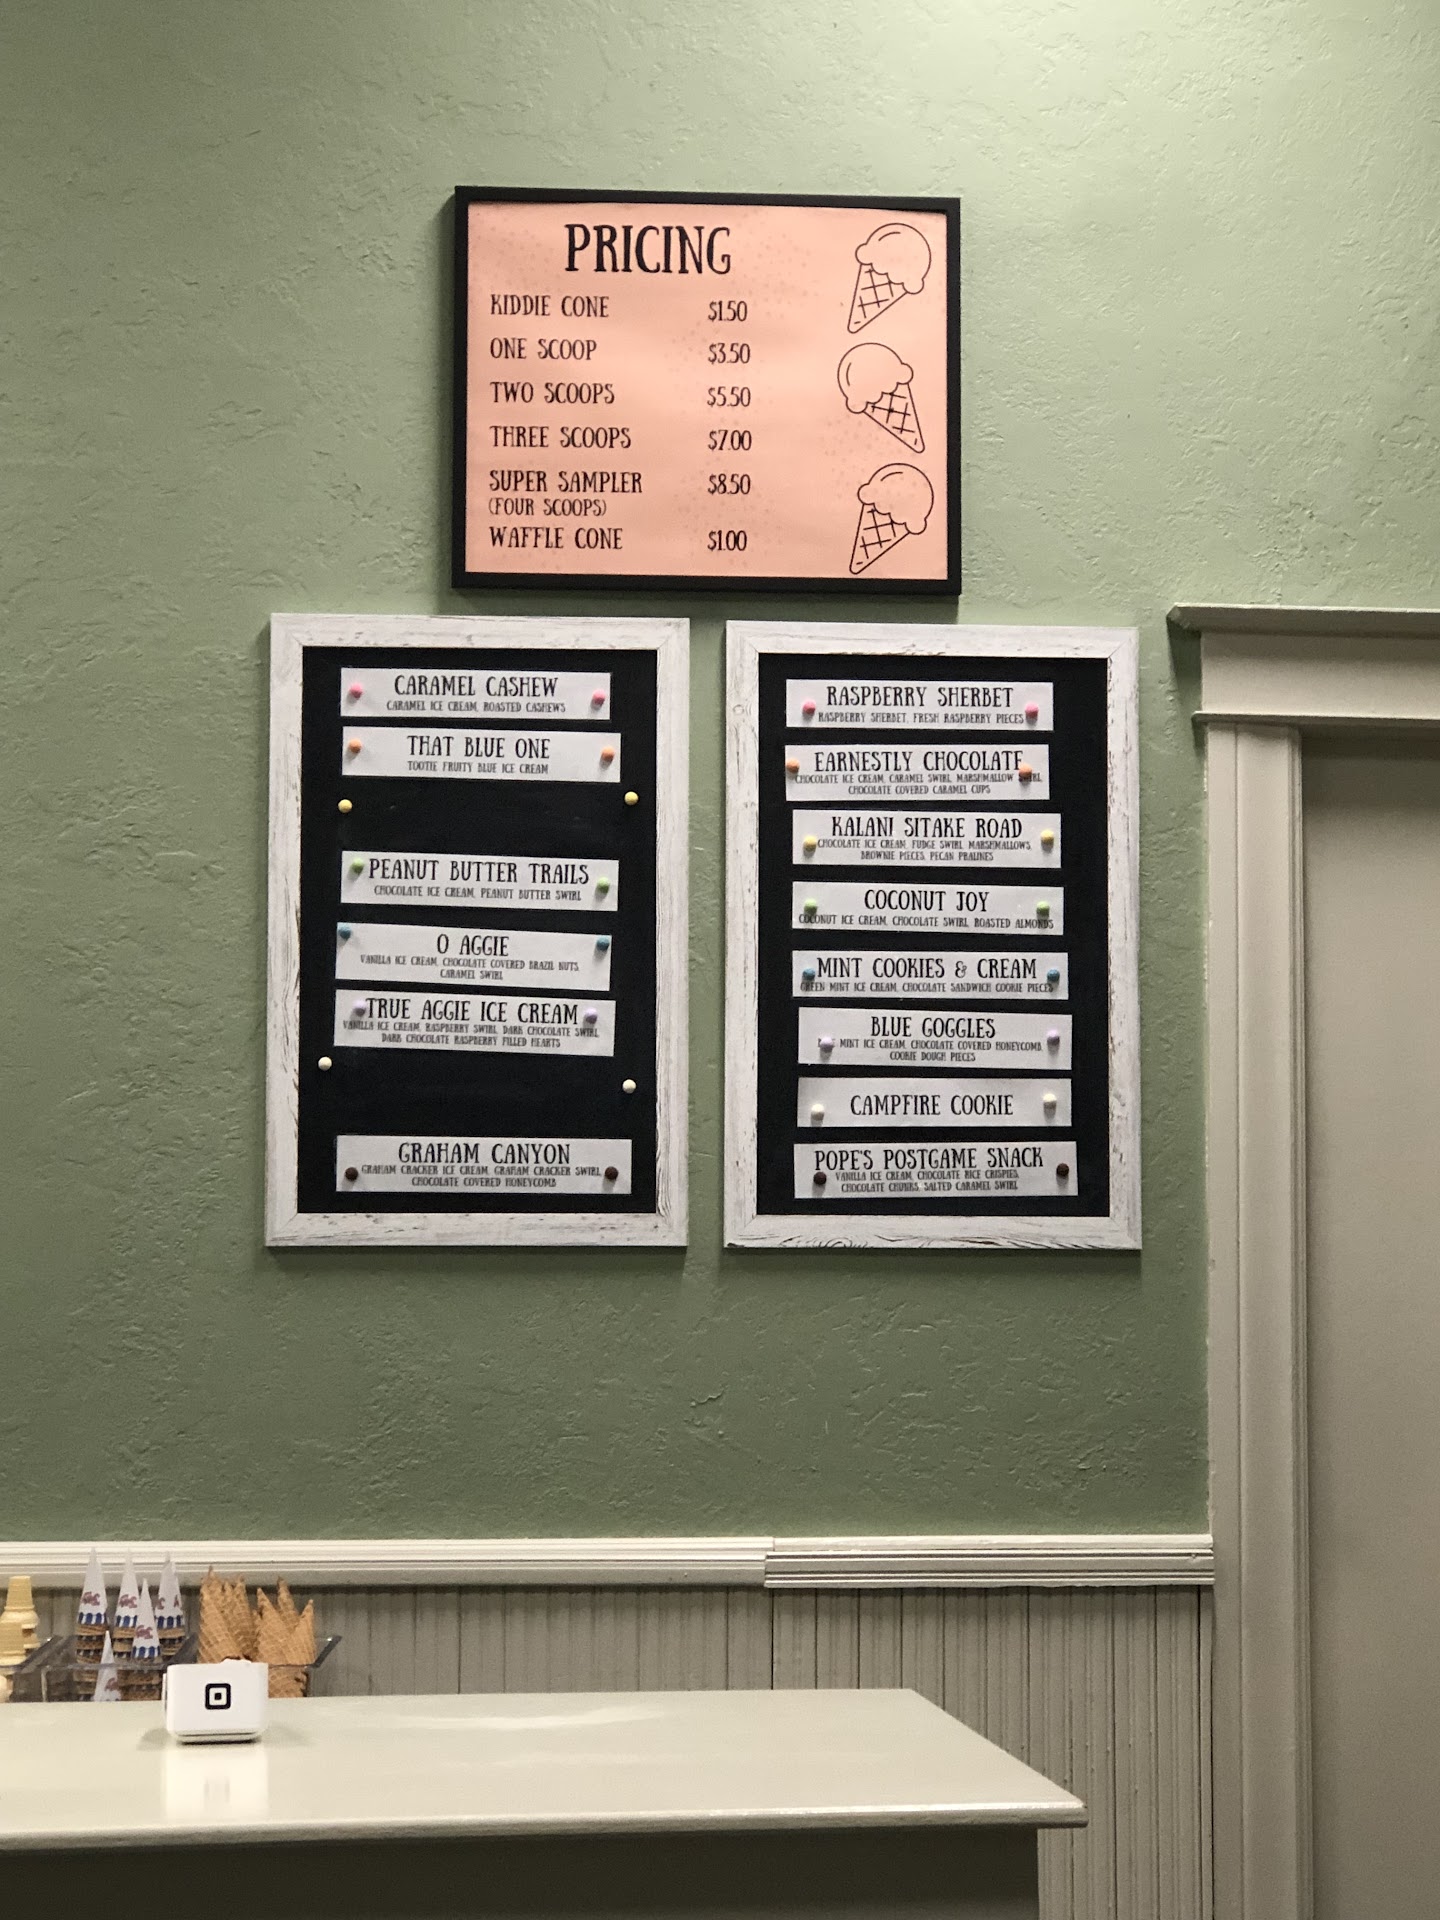 PRICING
KIDDIE CONE $1.50
ONE SCOOP $3.50
TWO SCOOPS $5.50
THREE SCOOPS $7.00
SUPER SAMPLER $8.50
(FOUR SCOOPS)
WAFFLE CONE $1.00
CARAMEL CASHEW
CARAMEL ICE CREAM, ROASTED CASHEWS
THAT BLUE ONE
TOOTIE FRUITY BLUE ICE CREAM
PEANUT BUTTER TRAILS
CHOCOLATE ICE CREAM, PEANUT BUTTER SWIRL
O AGGIE
VANILLA ICE CREAM, CHOCOLATE COVERED BRAZIL NUTS,
CARAMEL SWIRL
TRUE AGGIE ICE CREAM
VANILLA ICE CREAM, RASPBERRY SWIRL, DARK CHOCOLATE SWIRL,
DARK CHOCOLATE RASPBERRY FILLED HEARTS
GRAHAM CANYON
GRAHAM CRACKER ICE CREAM, GRAHAM CRACKER SWIRL,
CHOCOLATE COVERED HONEYCOMB
RASPBERRY SHERBET
RASPBERRY SHERBET, FRESH RASPBERRY PIECES
EARNESTLY CHOCOLATE
CHOCOLATE ICE CREAM, CARAMEL SWIRL, MARSHMALLOW SWIRL,
CHOCOLATE COVERED CARAMEL CUPS
KALANI SITAKE ROAD
CHOCOLATE ICE CREAM, FUDGE SWIRL, MARSHMALLOWS,
BROWNIE PIECES, PECAN PRALINES
COCONUT JOY
COCONUT ICE CREAM, CHOCOLATE SWIRL, ROASTED ALMONDS
MINT COOKIES & CREAM
GREEN MINT ICE CREAM, CHOCOLATE SANDWICH COOKIE PIECES
BLUE GOGGLES
MINT ICE CREAM, CHOCOLATE COVERED HONEYCOMB,
COOKIE DOUGH PIECES
CAMPFIRE COOKIE
POPE'S POSTGAME SNACK
VANILLA ICE CREAM, CHOCOLATE RICE CRISPIES,
CHOCOLATE CHUNKS, SALTED CARAMEL SWIRL